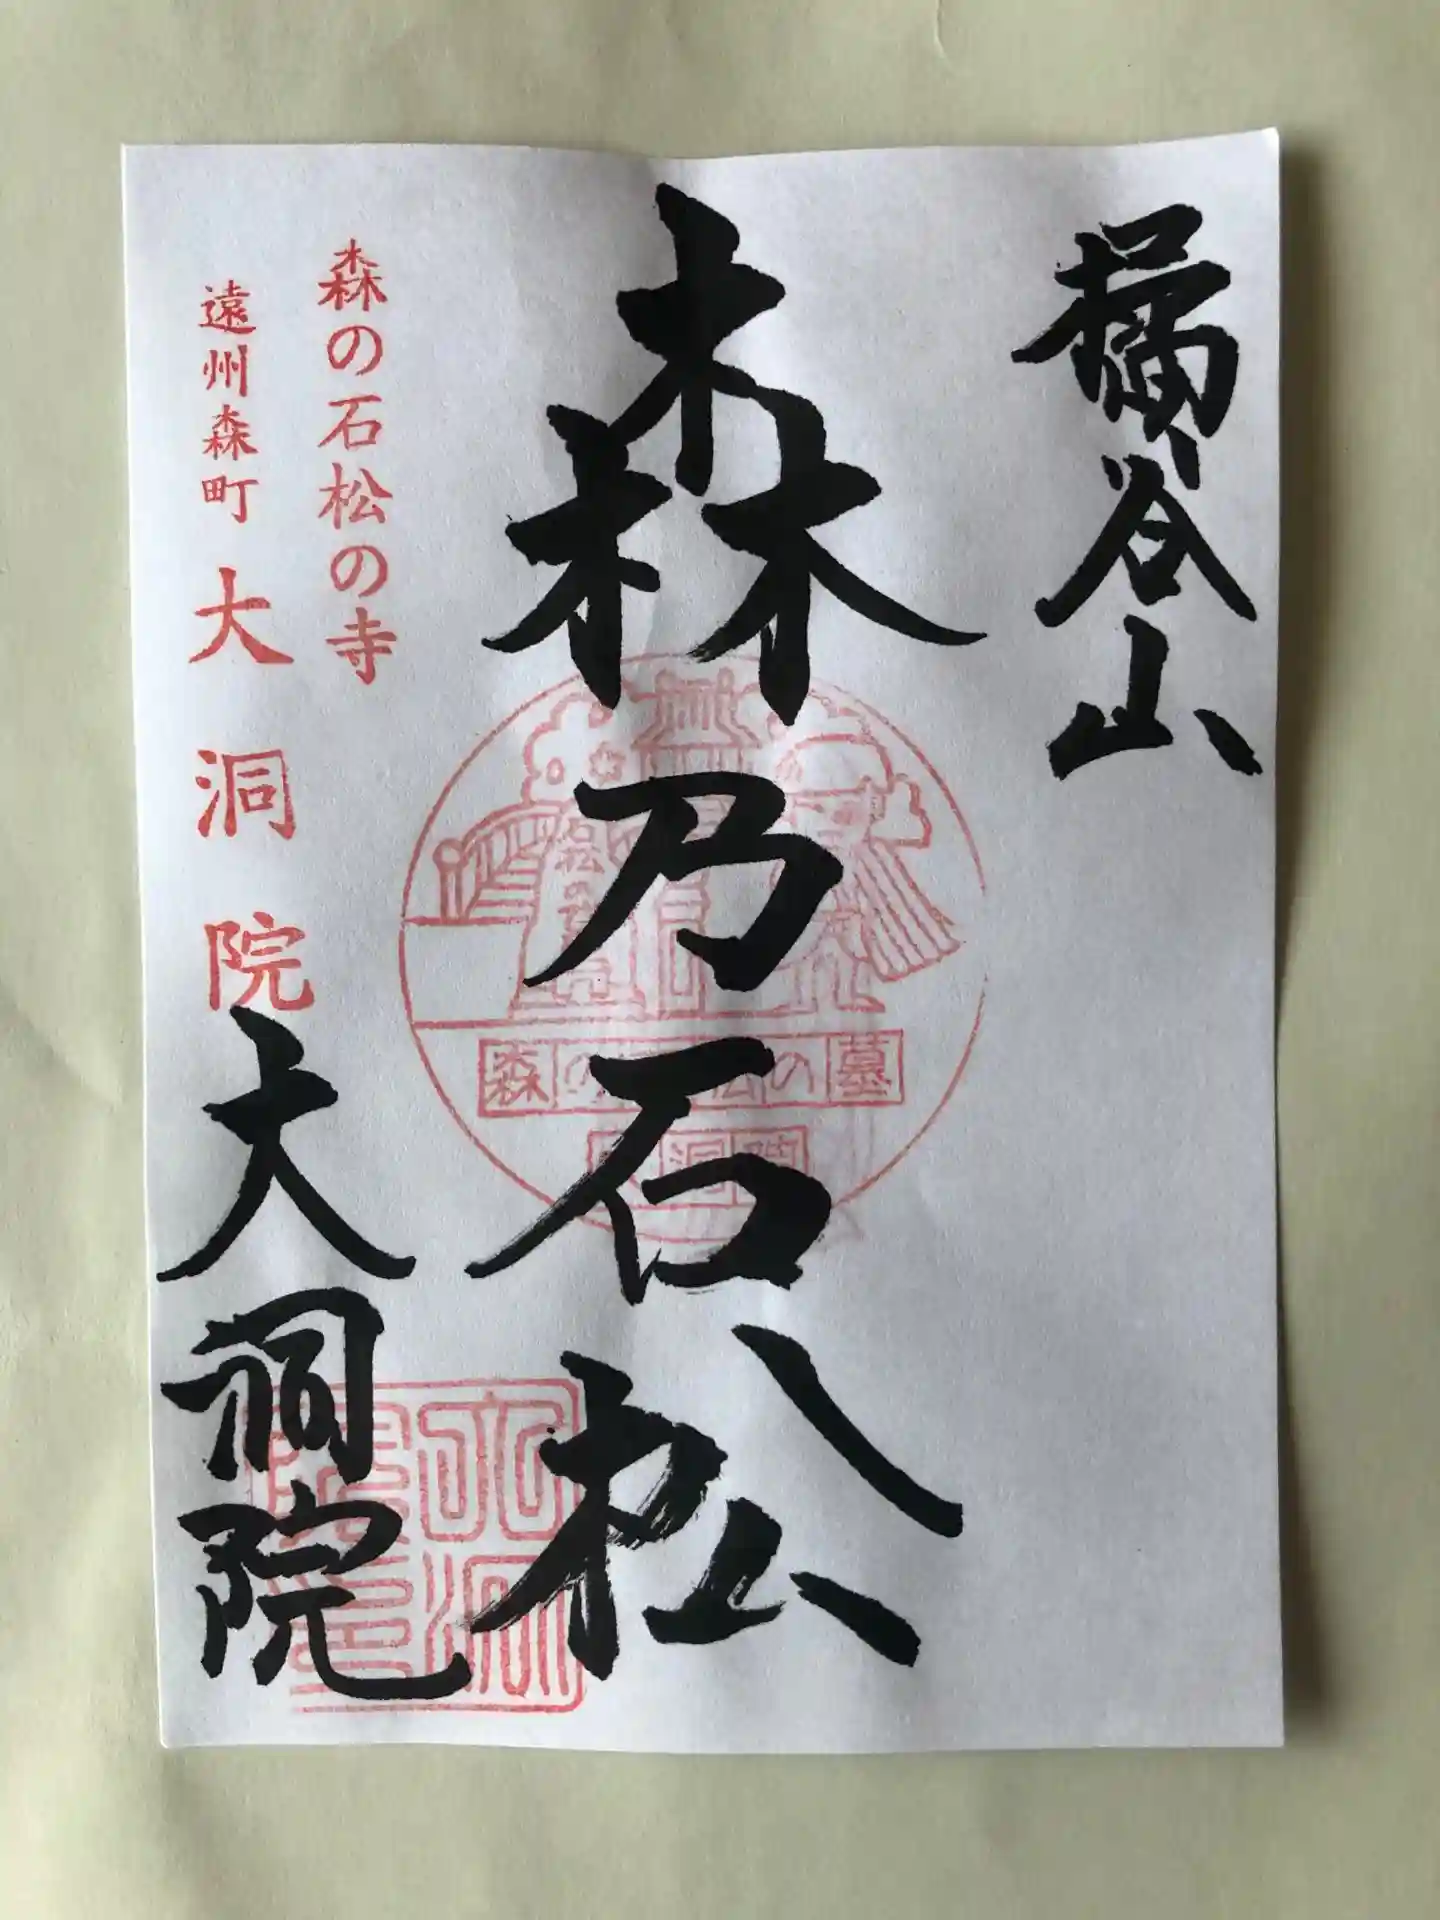 橘谷山
森乃石松
森の石松の寺
遠州森町 大洞院
大洞院
石松の墓
森の石松の墓
大洞院